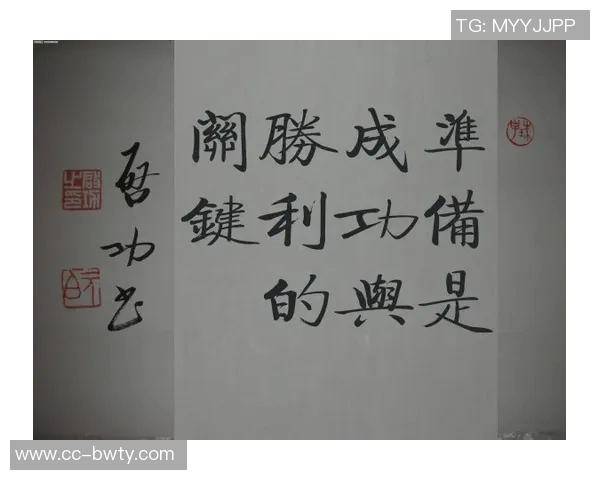 TG: MYYJJPP
準備是
成功與
勝利的
關鍵
啓功书
www.cc-bwty.com